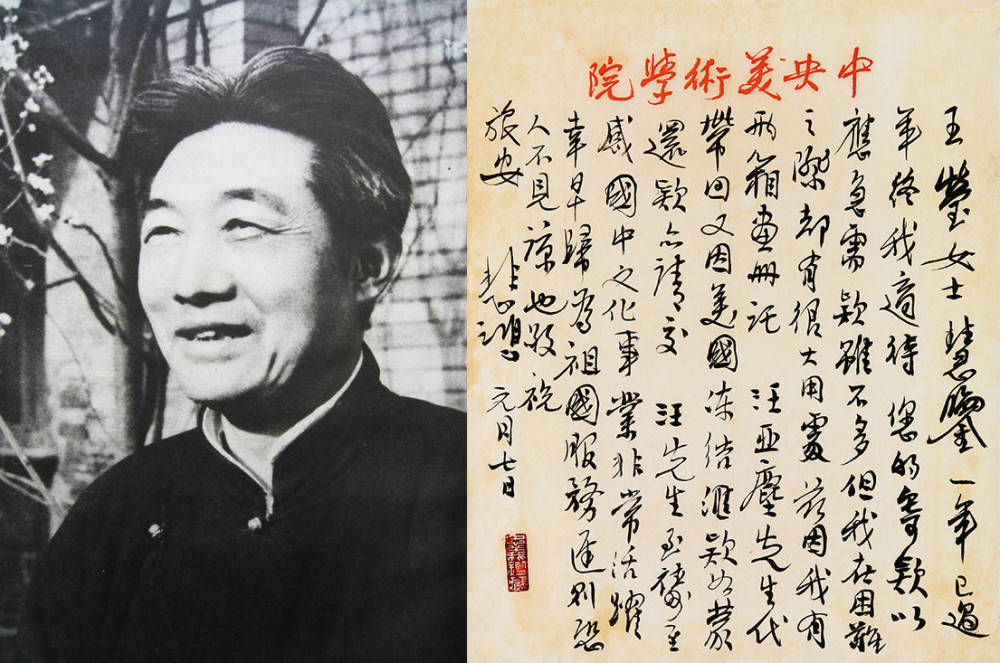 中央美術學院
王瑩女士慧鑒一年已過
年終我適得您的寄款以
應急需款雖不多但我在困難
之際却有很大用處茲因我有
兩箱畫册託汪亞塵先生代
帶回又因美國凍結滙款如蒙
還款亦請交汪先生至禱至
感國中文化事業非常活躍
幸早歸為祖國服務遲則恐
人不見諒也敬祝
旅安
悲鴻元月七日